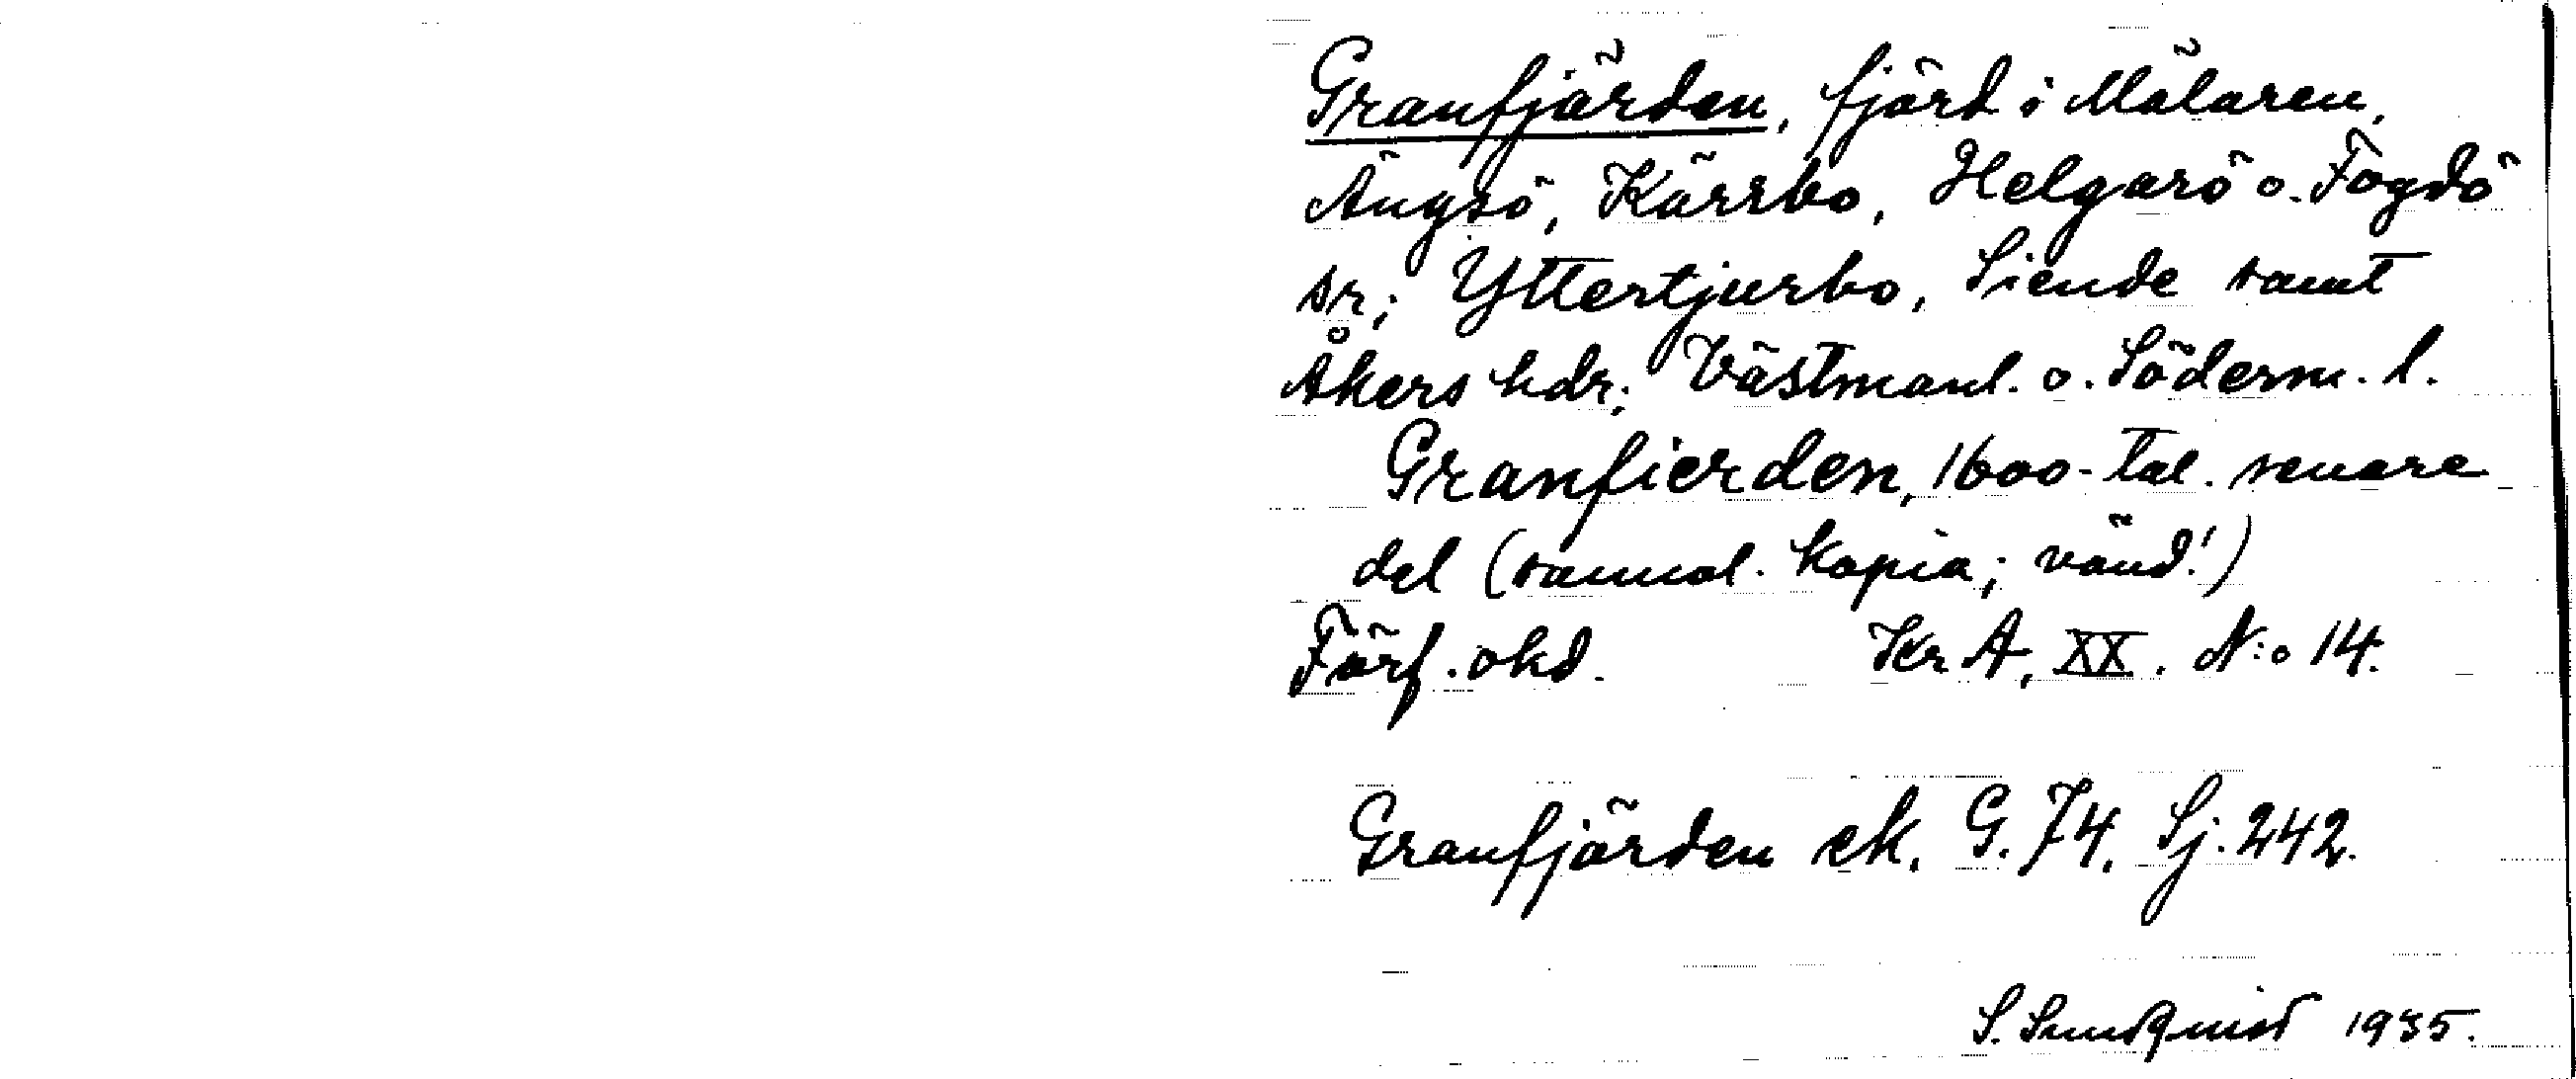 Granfjärden, fjärd i Mälaren,
Ängsö, Kärrbo, Helgarö o. Fogdö
sr; Yttertjurbo, Siende samt
Åkers hdr; Västmanl. o. Söderm. l.
Granfierden, 1600-tal. senare
del (samal. kopia; vänd!)
Förf. okd. Kr A, XX. N:o 14.
Granfjärden ek. G. 74. Sj. 242.
S. Sundquist 1935.